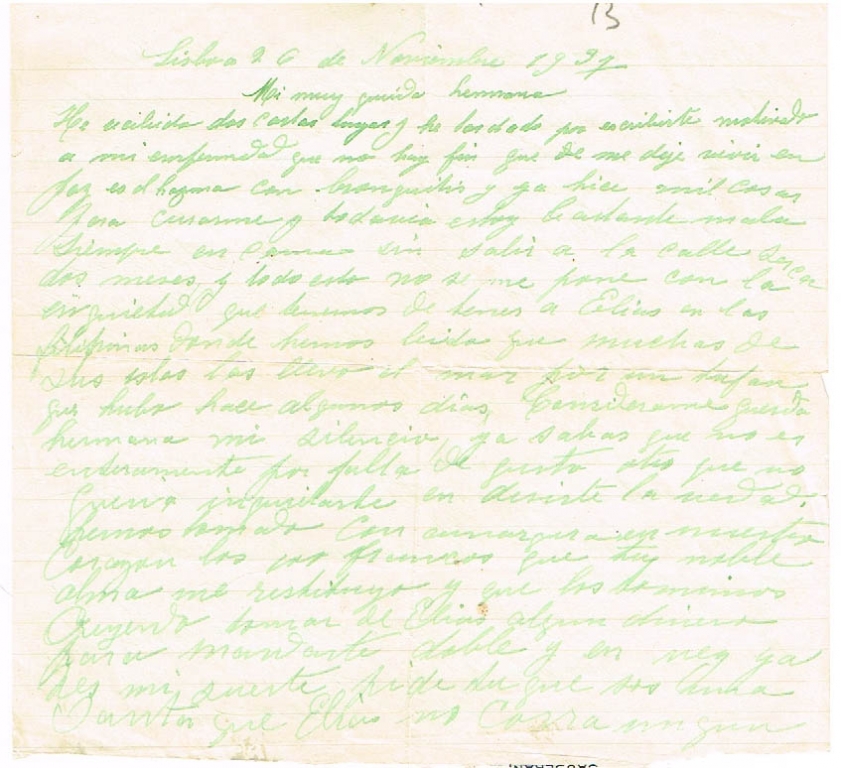 13
Lisboa 26 de Noviembre 1937
Mi muy querida hermana
He recibido dos cartas tuyas y he tardado por escribirte motivado
a mi enfermedad que no hay fin que de me deje vivir en
paz es el con bronquitis y ya hice mil cosas
Para curarme y todavia estoy bastante mala
siempre en cama sin salir a la calle
dos meses y todo esto no se me pone con la
que tenemos de tener a Elias en las
donde hemos leido que muchas de
sus islas las llevo el mar por un
que hubo hace algunos dias, querida
hermana mi silencio, ya sabes que no es
enteramente por falta de gusto que no
queria en la verdad,
hemos tomado con amargura en nuestro
Corazon los 100 francos que tu noble
alma me restituyo y que los
Creyendo tomar de Elias algun dinero
para mandarte doble y en vez ya
ves mi suerte, pide tu que sos una
Santa que Elias no Corra ningun